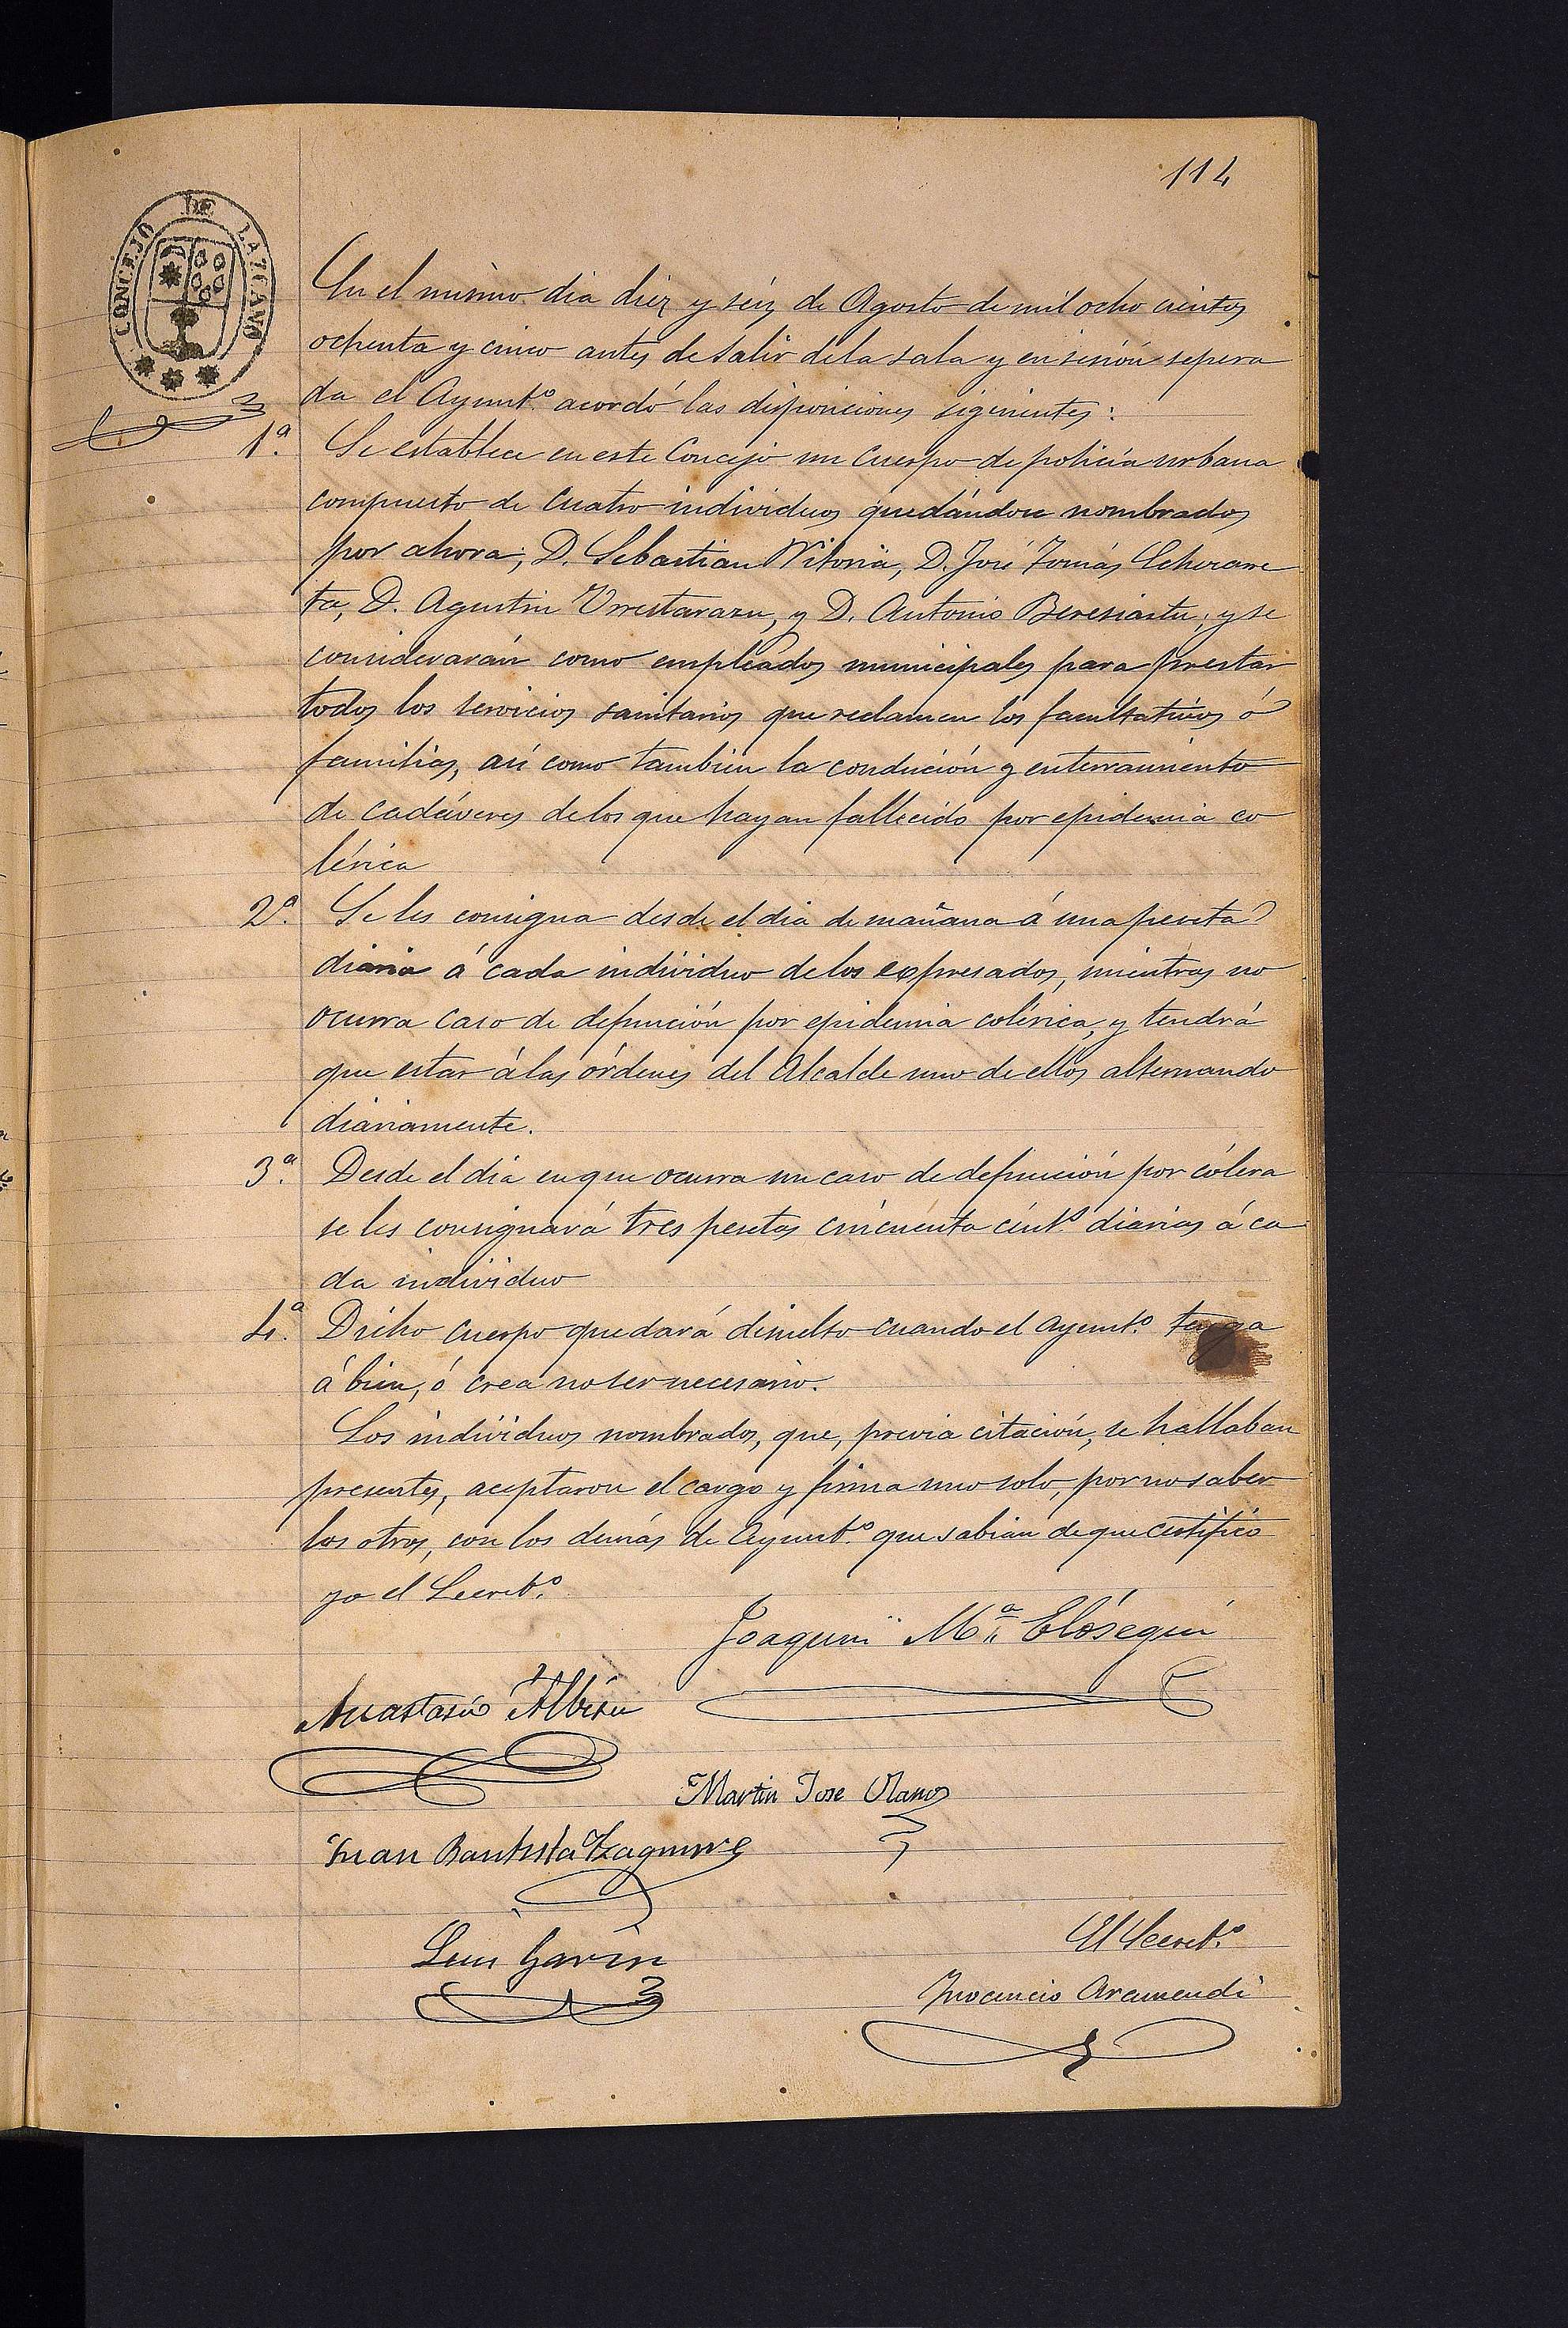 114
CONCEJO DE LAZCANO
En el mismo dia diez y seis de Agosto de mil ocho cientos
ochenta y cinco antes de salir de la sala y en sesión sepera
da el Ayunt.º acordó las disposiciones sigientes:
1.ª Se establece en este Concejo un Cuerpo de policía urbana
compuesto de cuatro individuos quedándose nombrados
por ahora; D. Sebastian Vitoria, D. José Tomás Echezarre
ta, D. Agustin Urrestarazu, y D. Antonio Beresiartu; y se
considerarán como empleados municipales para prestar
todos los servicios sanitarios que reclamen los facultativos ó
familias, así como tambien la condución y enterramiento
de cadáveres de los que hayan fallecido por epidemia co
lérica
2.ª Se les consigna desde el dia de mañana á una peseta
diaria á cada individuo de los expresados, mientras no
ocurra caso de defunción por epidemia colérica, y tendrá
que estar á las órdenes del Alcalde uno de ellos alternando
diariamente.
3.ª Desde el dia en que ocurra un caso de defunción por cólera
se les consignará tres pesetas cincuenta cént.s diarias á ca
da individuo
4.ª Dicho cuerpo quedará disuelto cuando el Ayunt.º tenga
á bien, ó crea no ser necesario.
Los individuos nombrados, que, previa citación, se hallaban
presentes, aceptaron el cargo y firma uno solo, por no saber
los otros, con los demás de Ayunt.º que sabian de que certifico
yo el Secret.º
Joaquin M.ª Elósegui
Anastasio Albisu
Martin Jose Olano
Juan Bautista Yzaguirre
Luis Garin
El Secret.º
Inocencio Aramendi